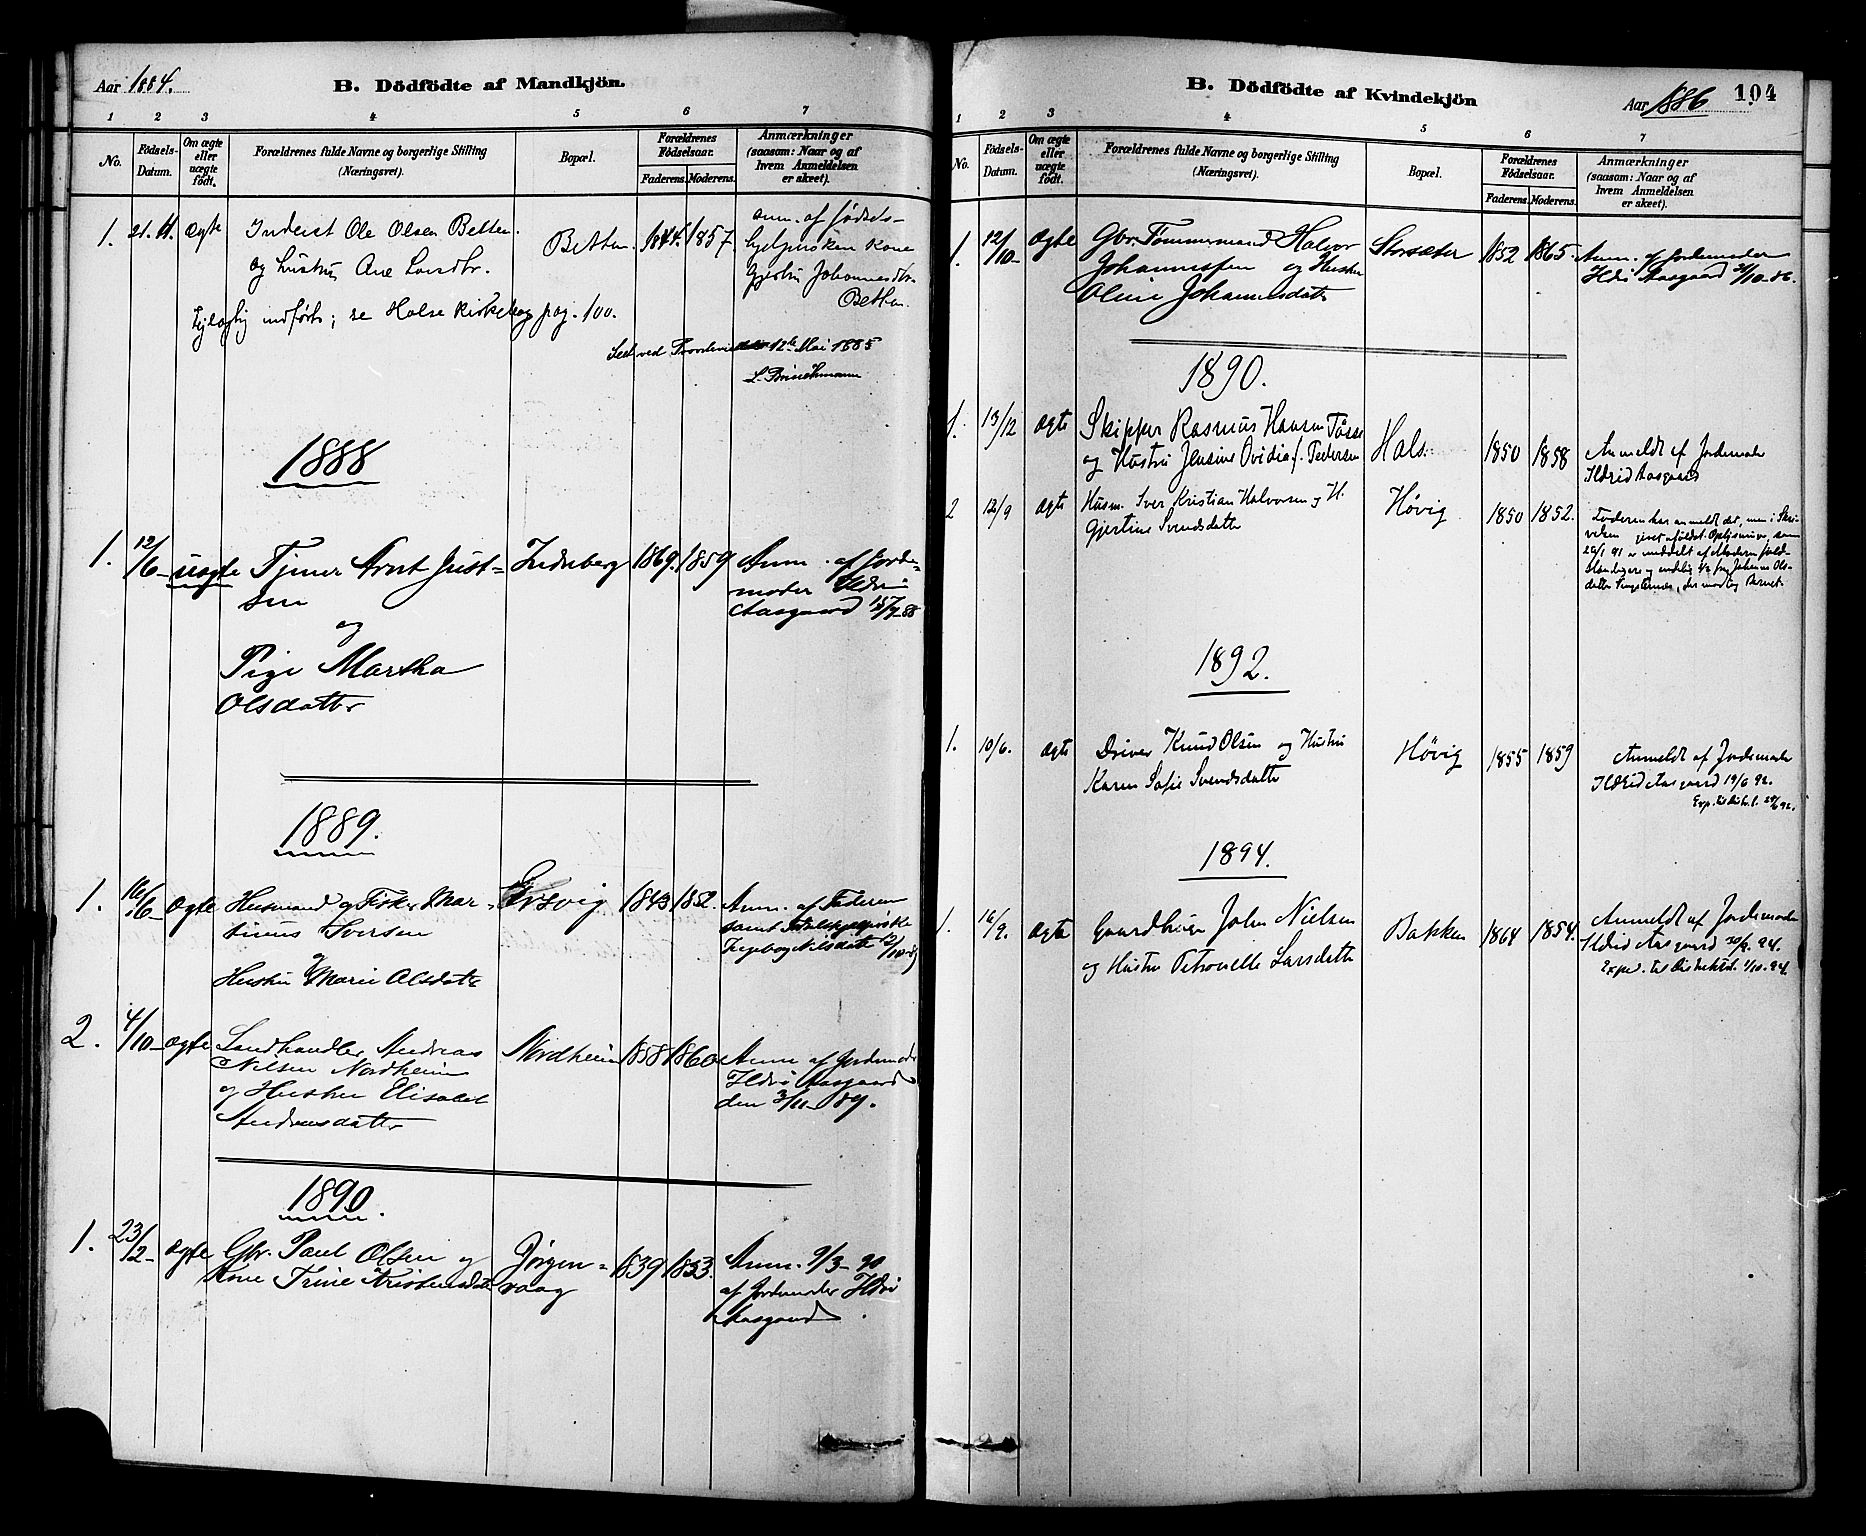 Aar 1884.
B. Dödfödte af Mandkjön.
1 2 3 4 5 6 7
No.
Födsels-Datum.
Om ægte eller uægte födt.
Forældrenes fulde Navne og borgerlige Stilling (Næringsvei).
Bopæl.
Forældrenes Födselsaar.
Faderens. Moderens.
Anmærkninger (saasom: Naar og af hvem Anmeldelsen er skeet).
1. 21. 11. ægte Inderst Ole Olsen Betten. Betten. 1844. 1857. anm. af fødsels-
og hustru Ane Larsdtr. hjelpersken kone
Johannesdtr.
Betten.
fejlagtig indført; se Halse Kirkebog pag. 100.
Seet ved Provstevisitats 12te Mai 1885
L. Brinchmann
1888
1. 12/6 uægte Tjener Arnt Just- 1869. 1859 Anm. af Jorde-
sen moder Ildri
og Aasgaard 15/7 88
Pige Martha
Olsdatter
1889.
1. 16/6 ægte Husmand og Fisker Mar- Ersvig 1843 1852. Anm. af Faderen
tinus Iversen samt
og Ingeborg Nilsdatter 12/10 89
Hustru Marie Olsdatter
2. 4/10 ægte Landhandler Andreas Nordheim 1858 1860 Anm. af Jordemoder
Nilsen Nordheim Ildri Aasgaard
og Hustru Elisabet den 3/11 89.
Andreasdatter
1890.
1. 23/2 ægte Gbr. Paul Olsen og Jørgen- 1839 1853. Anm. 9/3 90
Kone Trine Kristensdatter vaag af Jordemoder Ildri
Aasgaard.
B. Dödfödte af Kvindekjön
Aar 1886
104
1 2 3 4 5 6 7
No.
Födsels-Datum.
Om ægte eller uægte födt.
Forældrenes fulde Navne og borgerlige Stilling (Næringsvei).
Bopæl.
Forældrenes Födselsaar.
Faderens. Moderens.
Anmærkninger (saasom: Naar og af hvem Anmeldelsen er skeet).
1. 12/10 ægte Gbr. Tømmermand Halvor Storsæter 1852 1865. Anm. af Jordemoder
Johannessen og Hustru Ildri Aasgaard /10 86.
Oline Johannesdatter
1890.
1. 13/12 ægte Skipper Rasmus Hansen Tøsse Hals. 1850 1858 Anmeldt af Jordemoder
og Hustru Jensine Ovidia f. Pedersen Ildrid Aasgaard
2 12/9 ægte Husm. Iver Kristian Halvorsen og H. Høvig 1850 1852. Faderen har anmeldt det, men i
Gjertine Svendsdatter
1892.
1. 10/6. ægte Driver Knud Olsen og Hustru Høvig 1855 1859 Anmeldt af Jordemoder
Karen Sofie Svendsdatter Ildrid Aasgaard 19/6 92.
1894.
1. 16/9. ægte Gaardbruger John Nielsen Bakken 1864 1854. Anmeldt af Jordemoder
og Hustru Petronelle Larsdatter Ildrid Aasgaard 30/9. 94.
Exped. til 1/10. 94.